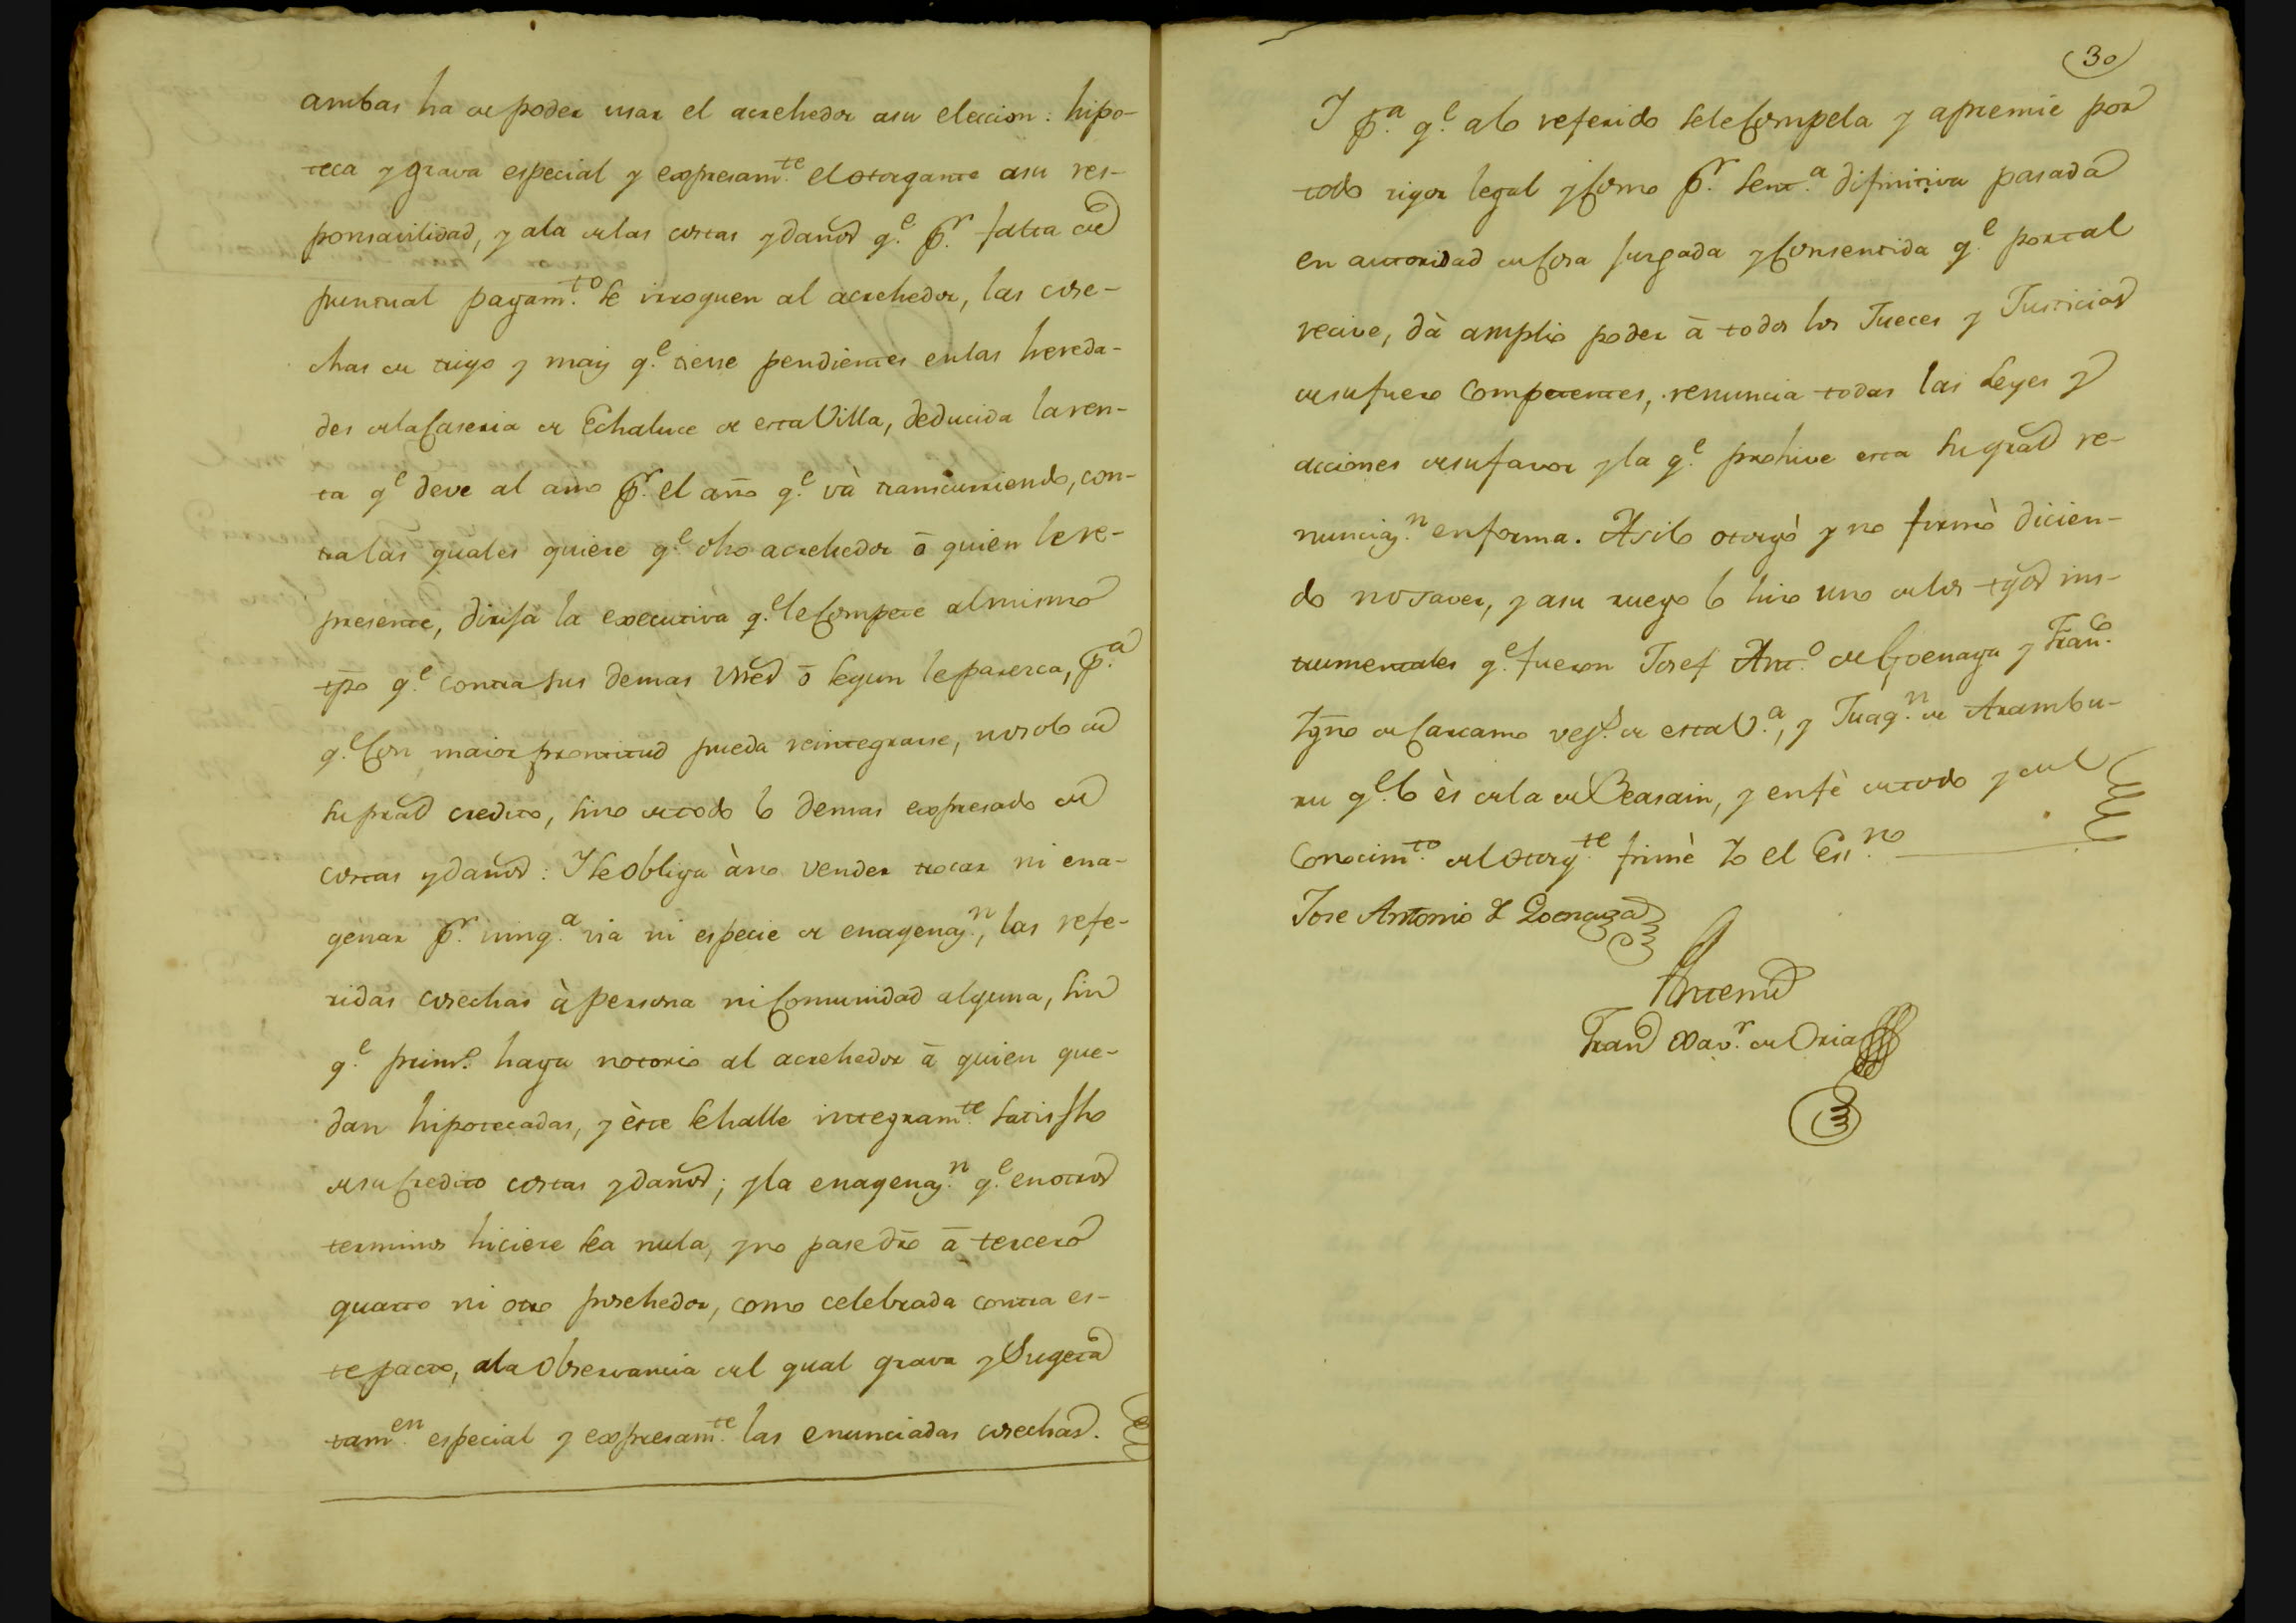 ambas ha de poder usar el acrehedor asu eleccion: hipo-
teca y grava especial y expresam.te el otorgante asu res-
ponsavilidad, y ala delas costas y daños q.e p.r falta de
puntual pagam.to se irroguen al acrehedor, las cose-
chas de trigo y maiz q.e tiene pendientes enlas hereda-
des dela Caseria de Echaluce de esta Villa, deducida la ren-
ta q.e deve al amo p.r el año q.e và transcurriendo, con-
tra las quales quiere q.e dho acrehedor ō quien le re-
presente, dirija la executiva q.e le Compete al mismo
tpo q.e contra sus demas vnes ō segun le parezca, p.a
q.e Con maior prontitud pueda reintegrarse, no solo de
su pral credito, sino de todo lo demas expresado de
costas y daños: Y se obliga à no vender trocar ni ena-
genar p.r ning.a via ni especie de enagenaz.n, las refe-
ridas cosechas à persona ni Comunidad alguna, sin
q.e prim.o haga notorio al acrehedor ā quien que-
dan hipotecadas, y èste se halle integram.te satisfho
de su Credito costas y daños; y la enagenaz.n q.e en otros
terminos hiciere sea nula, y no pase dro ā tercero
quarto ni otro posehedor, como celebrada contra es-
te pacto, ala Observancia del qual grava y Sugeta
tam.en especial y expresam.te las enunciadas cosechas.
30
Y p.a q.e alo referido sele Compela y apremie por
todo rigor legal y Como p.r Sent.a difinitiva pasada
en autoridad de Cosa Juzgada y Consentida q.e por tal
recive, dà amplio poder ā todos los Jueces y Justicias
de su fuero Competentes, renuncia todas las Leyes y
acciones de su favor y la q.e prohive esta su gral re-
nunciaz.n en forma. Asi lo otorgò y no firmò dicien-
do no saver, y asu ruego lo hizo uno delos tgos ins-
trumentales q.e fueron Josef Ant.o de Goenaga y Fran.co
Ygno de Carcamo vez.s de esta V.a, y Juaq.n de Arambu-
ru q.e lo ès dela de Beasain, y en fè de todo y del
Conocim.to del Otorg.te firmè Yo el Ess.no
Jose Antonio de Goenaga
Antemi
Fran.co Xav.r de Oria